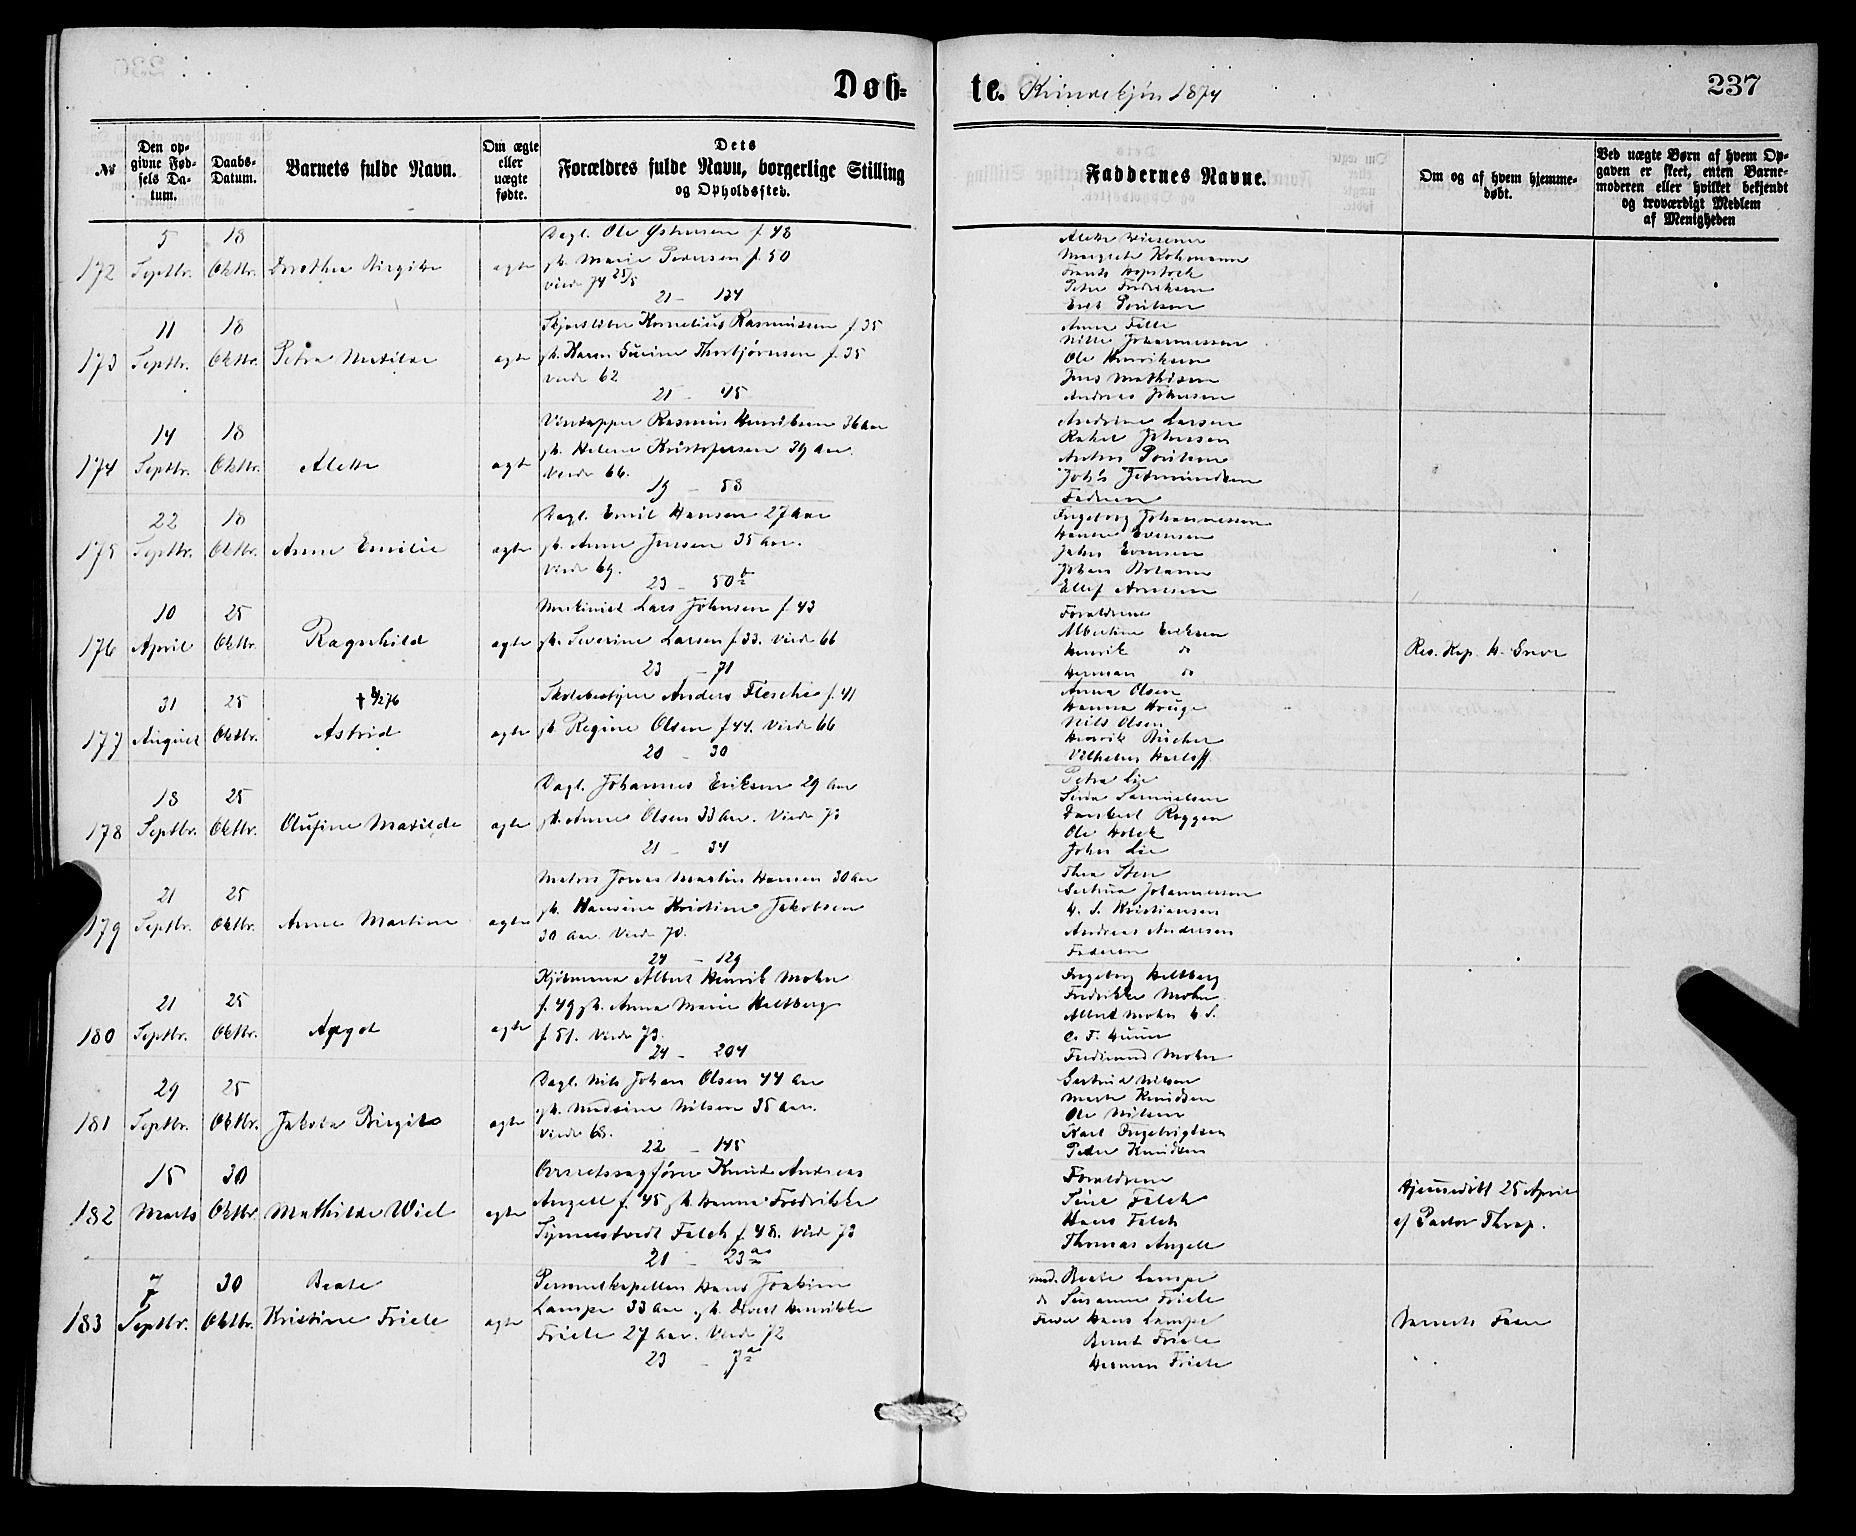 Døb=
te. Kvindekjøn 1874
237
№
Den opgivne Fødsels Datum.
Daabs-Datum.
Barnets fulde Navn.
Om ægte eller uægte fødte.
Dets Forældres fulde Navn, borgerlige Stilling og Opholdssted.
Faddernes Navne.
Om og af hvem hjemmedøbt.
Ved uægte Børn af hvem Opgaven er skeet, enten Barnemoderen eller hvilket bekjendt og troværdigt Medlem af Menigheden
172
5 Septbr.
18 Oktbr.
Dorothea Birgitte
ægte
Dagl. Ole Østensen f. 48
gk. Marie Pedersen f. 50
viede 74 25/5
21 – 134
Margrete Kohmann
Frants Hopstock
Peter Fredriksen
173
11 Septbr.
18 Oktbr.
Petra Matilde
ægte
Kornelius Rasmussen f. 35
gk. Karen Thorbjørnsen f. 35
viede 62
21 – 45
Anne
Nille Johannessen
Ole Henriksen
Jens Mathisen
Andreas Johnsen
174
14 Septbr.
18 Oktbr.
Alette
ægte
Vintapper Rasmus Henriksen 36 aar
gk. Helene Kristofersen 39 aar.
Viede 66.
19 – 58
Andrine Larsen
Rakel Johnsen
Faderen
175
22 Septbr.
18 Oktbr.
Anne Emilie
ægte
Dagl. Emil Hansen 27 aar
gk. Anne Jensen 35 aar.
Viede 69.
23 – 50 b
Ingeborg Johannessen
Hanne Evensen
Johs Evensen
Ellef Arnesen
176
10 April
25 Oktbr.
Ragnhild
ægte
Maskinist Lars Johnsen f. 43
gk. Severine Larsen f. 33. Viede 66
23 – 71
Forældrene
Albertine Eriksen
Henrik do
Herman do
Res. Kap. H.
177
31 August
25 Oktbr.
Astrid
ægte
Skolebestyrer Anders f. 41
gk. Regine Olsen f 44. Viede 66
20 – 30
Anna Olsen
Hanna Hauge
Nils Olsen
Henrik Bücher
Vilhelm Harloff
178
18 Septbr.
25 Oktbr.
Olufine Matilde
ægte
Dagl. Johannes Eriksen 29 aar
gk. Anne Olsen 33 aar. Viede 73
21 – 34
Petra Lie
Sina Samuelsen
Ole Holck
Johs Lie
179
21 Septbr.
25 Oktbr.
Anne Martine
ægte
Matros Jonas Martin Hansen 30 aar
gk. Hansine Kristine Jakobsen
30 aar. Viede 70.
24 – 129
Thea Sten
Gertrud Johannessen
H. S. Kristiansen
Andreas Andersen
Faderen
180
21 Septbr.
25 Oktbr.
Aagot
ægte
Kjøbmand Albert Henrik Mohr
f. 49 gk. Anna Marie Heltberg
f. 51. Viede 73.
24 – 204
Ingeborg Heltberg
Fredrikke Mohr
Albert Mohr
Ferdinand Mohr
181
29 Septbr.
25 Oktbr.
Jakoba Birgitte
ægte
Dagl. Nils Johan Olsen 44 aar
gk. Madsine Nilsen 35 aar.
Viede 68.
22 – 145
Gertrud Nilsen
Marte Knudsen
Ole Nilsen
Karl Ingebrigtsen
Peder Knudsen
182
15 Marts
30 Oktbr.
Mathilde Wiel
ægte
Overretssagfører Knud Andreas
Angell f. 45 gk. Hanna Fredrikke
Falch f. 48. Viede 73
21 – 23 a
Forældrene
Sine Falch
Hans Falch
Thomas Angell
Hjemmedøbt 25 April
af Pastor Thrap.
183
7 Septbr.
30 Oktbr.
Beate
Kristine Friele
ægte
Hans Joakim
Lampe 33 aar gk. Henrikke
Friele 27 aar. Viede 72
23 – 7 a
mad. Beate Lampe
do Susanne Friele
Hans Lampe
Berent Friele
Herman Friele